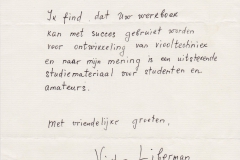 Ik find dat Uw werkboek
kan met succes gebruiet worden
voor ontwikkeling van viooltechniek
en naar mijn mening is een uitstekende
studiemateriaal voor studenten en
amateurs.
Met vriendelijke groeten,
Liberman